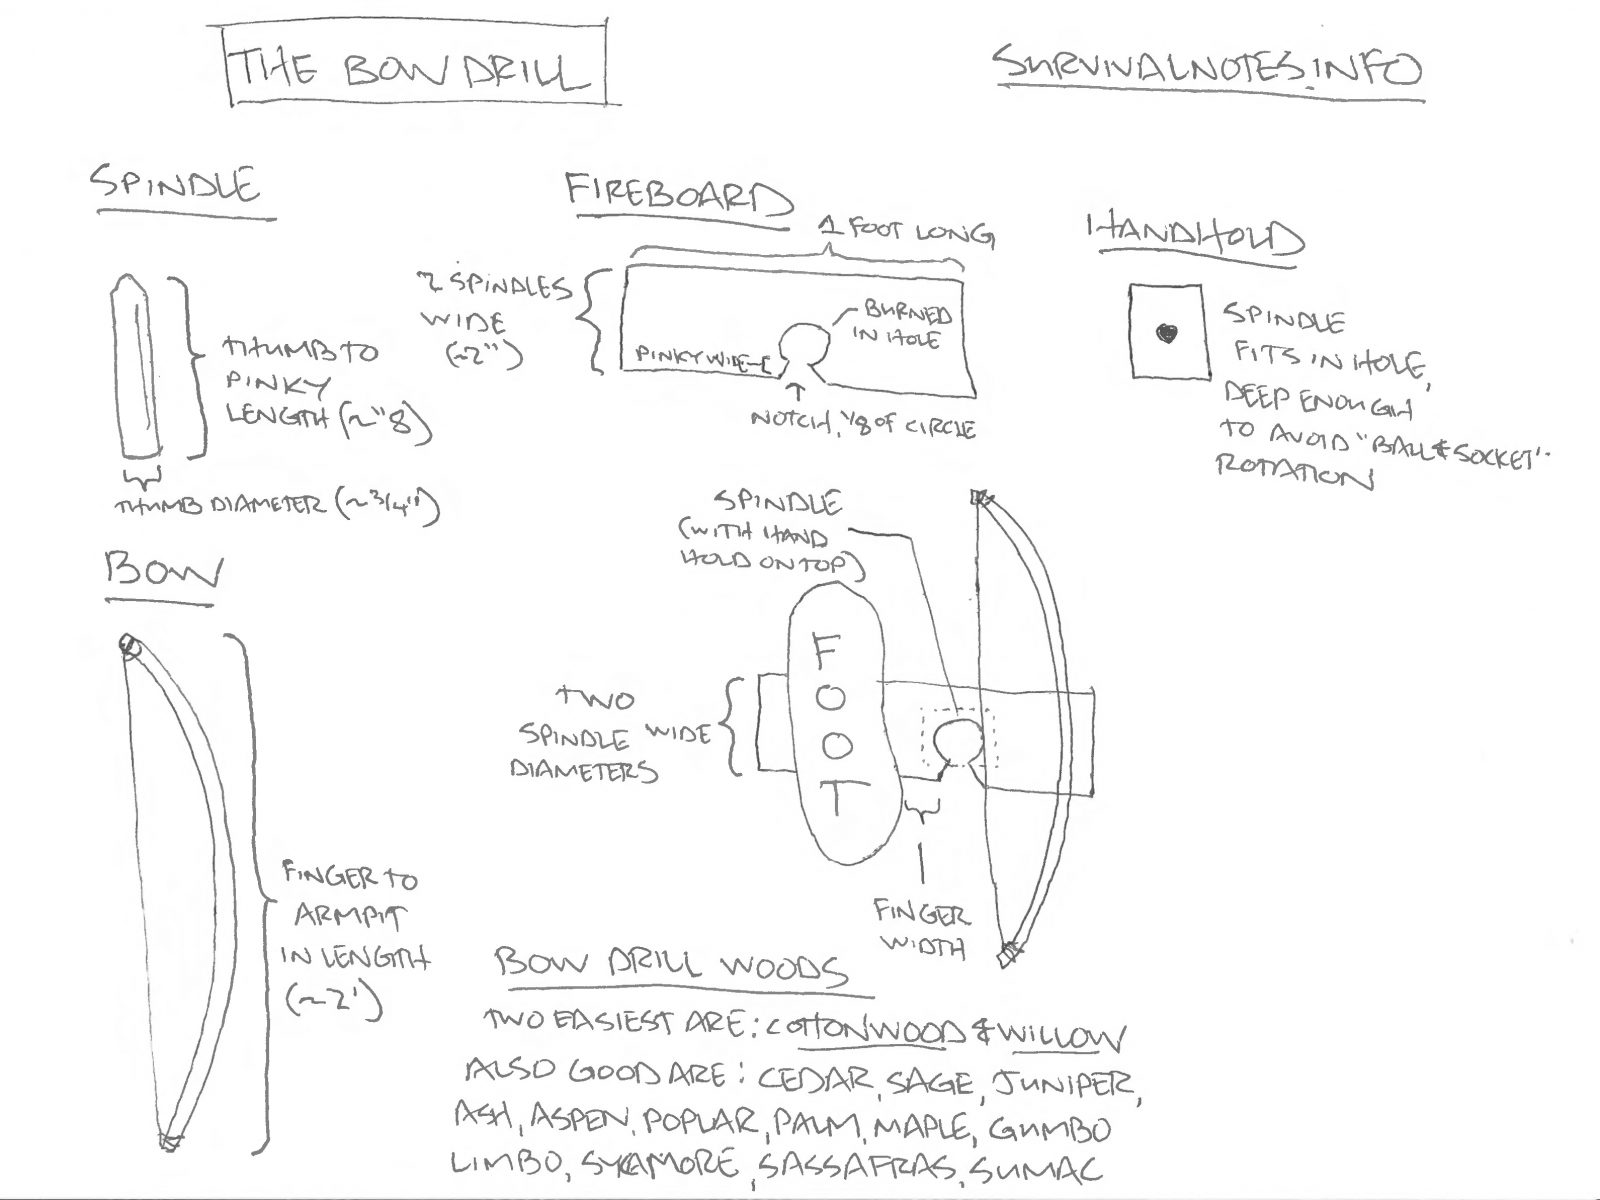 THE BOW DRILL
SURVIVALNOTES.INFO
SPINDLE
THUMB TO
PINKY
LENGTH (~"8)
THUMB DIAMETER (~3/4")
FIREBOARD
1 FOOT LONG
2 SPINDLES
WIDE
(~2")
BURNED
IN HOLE
PINKY WIDE-[
NOTCH, 1/8 OF CIRCLE
HANDHOLD
SPINDLE
FITS IN HOLE,
DEEP ENOUGH
TO AVOID "BALL & SOCKET"
ROTATION
BOW
FINGER TO
ARMPIT
IN LENGTH
(~2')
SPINDLE
(WITH HAND
HOLD ON TOP)
FOOT
TWO
SPINDLE WIDE
DIAMETERS
FINGER
WIDTH
BOW DRILL WOODS
TWO EASIEST ARE: COTTONWOOD & WILLOW
ALSO GOOD ARE: CEDAR, SAGE, JUNIPER,
ASH, ASPEN, POPLAR, PALM, MAPLE, GUMBO
LIMBO, SYCAMORE, SASSAFRAS, SUMAC